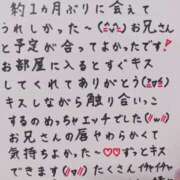 約1カ月ぶりに会えて
うれしかった〜(>‿<)お兄さん
と予定が合ってよかったです!
お部屋に入るとすぐキス
してくれてありがとう
キスしながら触り合いっこ
するのめっちゃエッチでした
お兄さんの唇やわらかくて
気持ちよかった〜♥♡ずっとキス
できます たくさんイチャイチャ